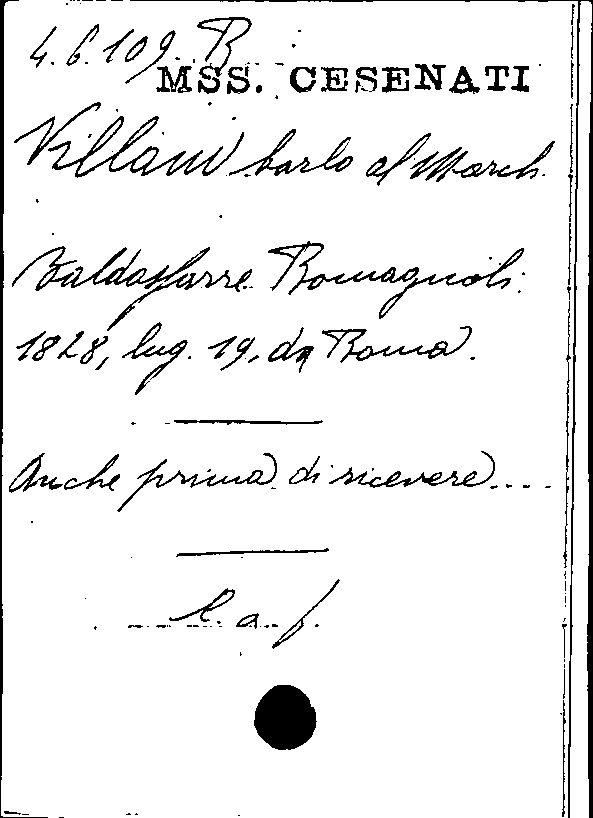 4.6.109. B
MSS. CESENATI
Villani Carlo al March.
Baldassarre Romagnoli.
1828, lug. 19, da Roma.
Anche prima di ricevere....
L. a. f.